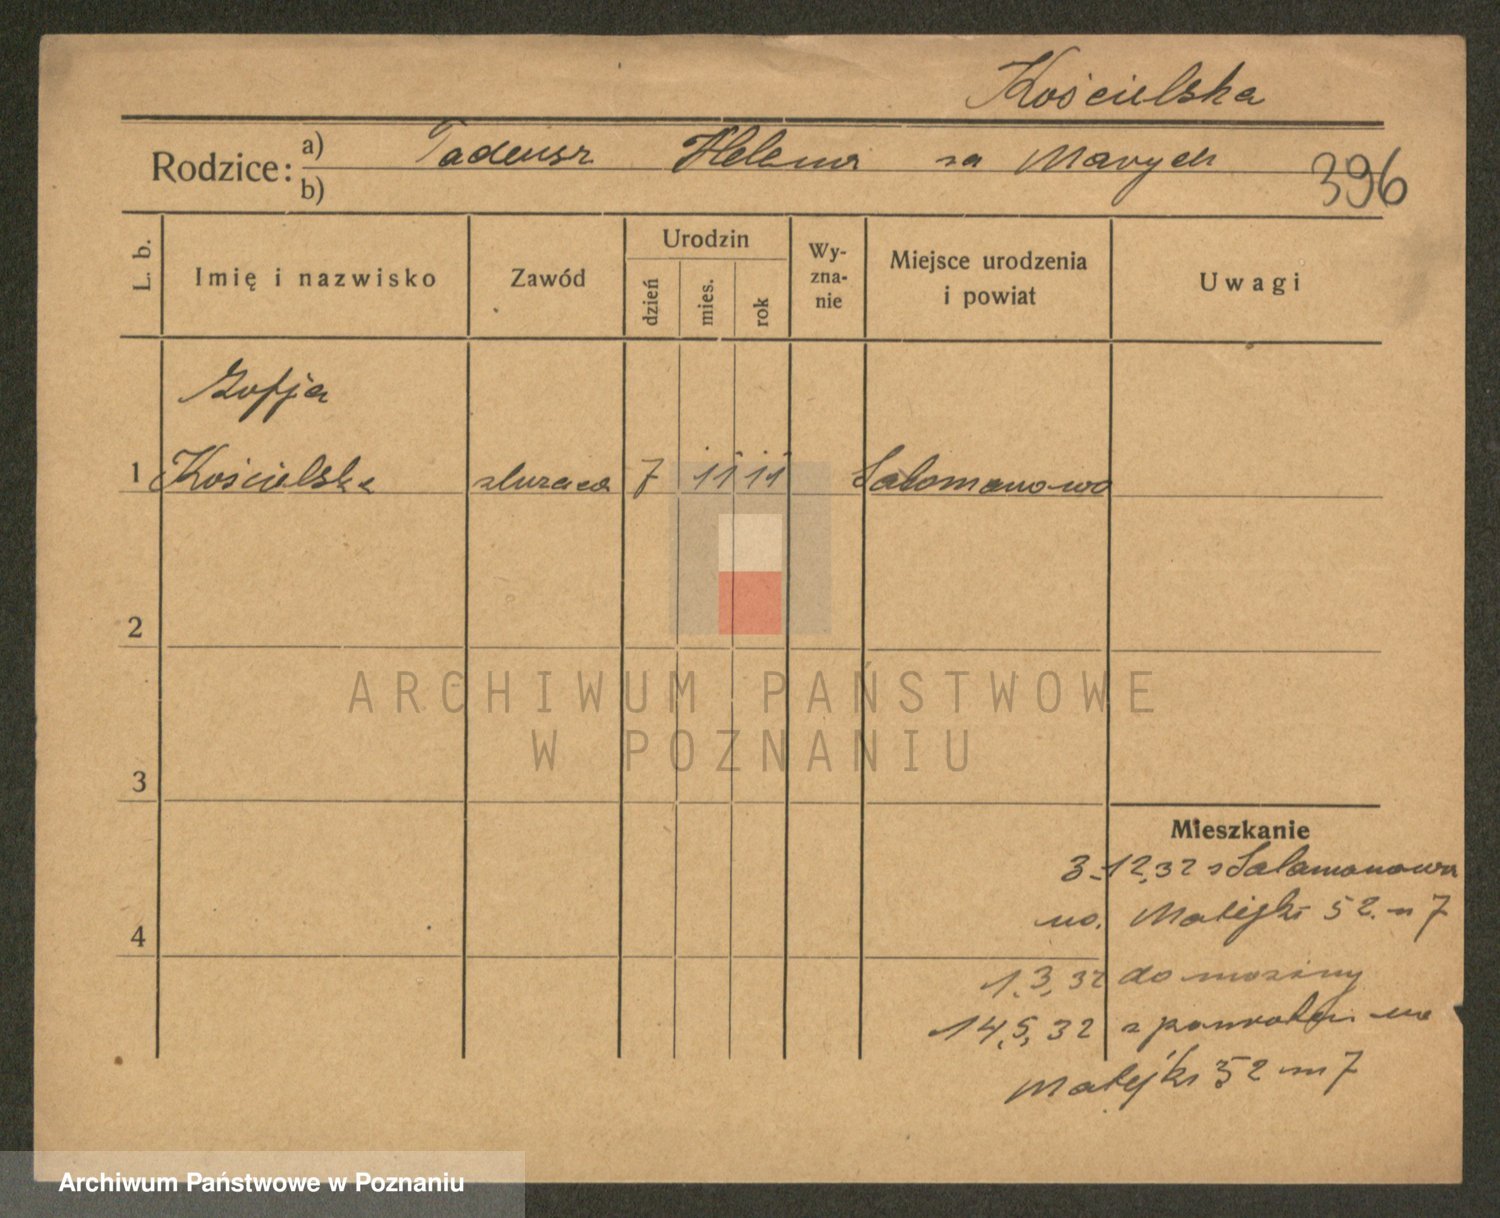 Kościelska
Rodzice: a) Tadeusz Helena za Marych
b)
396
L. b.
Imię i nazwisko
Zawód
Urodzin
dzień
mies.
rok
Wy-
zna-
nie
Miejsce urodzenia
i powiat
Uwagi
Zofja
1 Kościelska służąca 7 11 11 Salomonowo
2
ARCHIWUM PAŃSTWOWE
W POZNANIU
3
Mieszkanie
3.12.32 z Salamonowa
na. Matejki 52. m 7
4
1.3.32 do
14.5.32 z powrotem na
Matejki 52 m 7
Archiwum Państwowe w Poznaniu